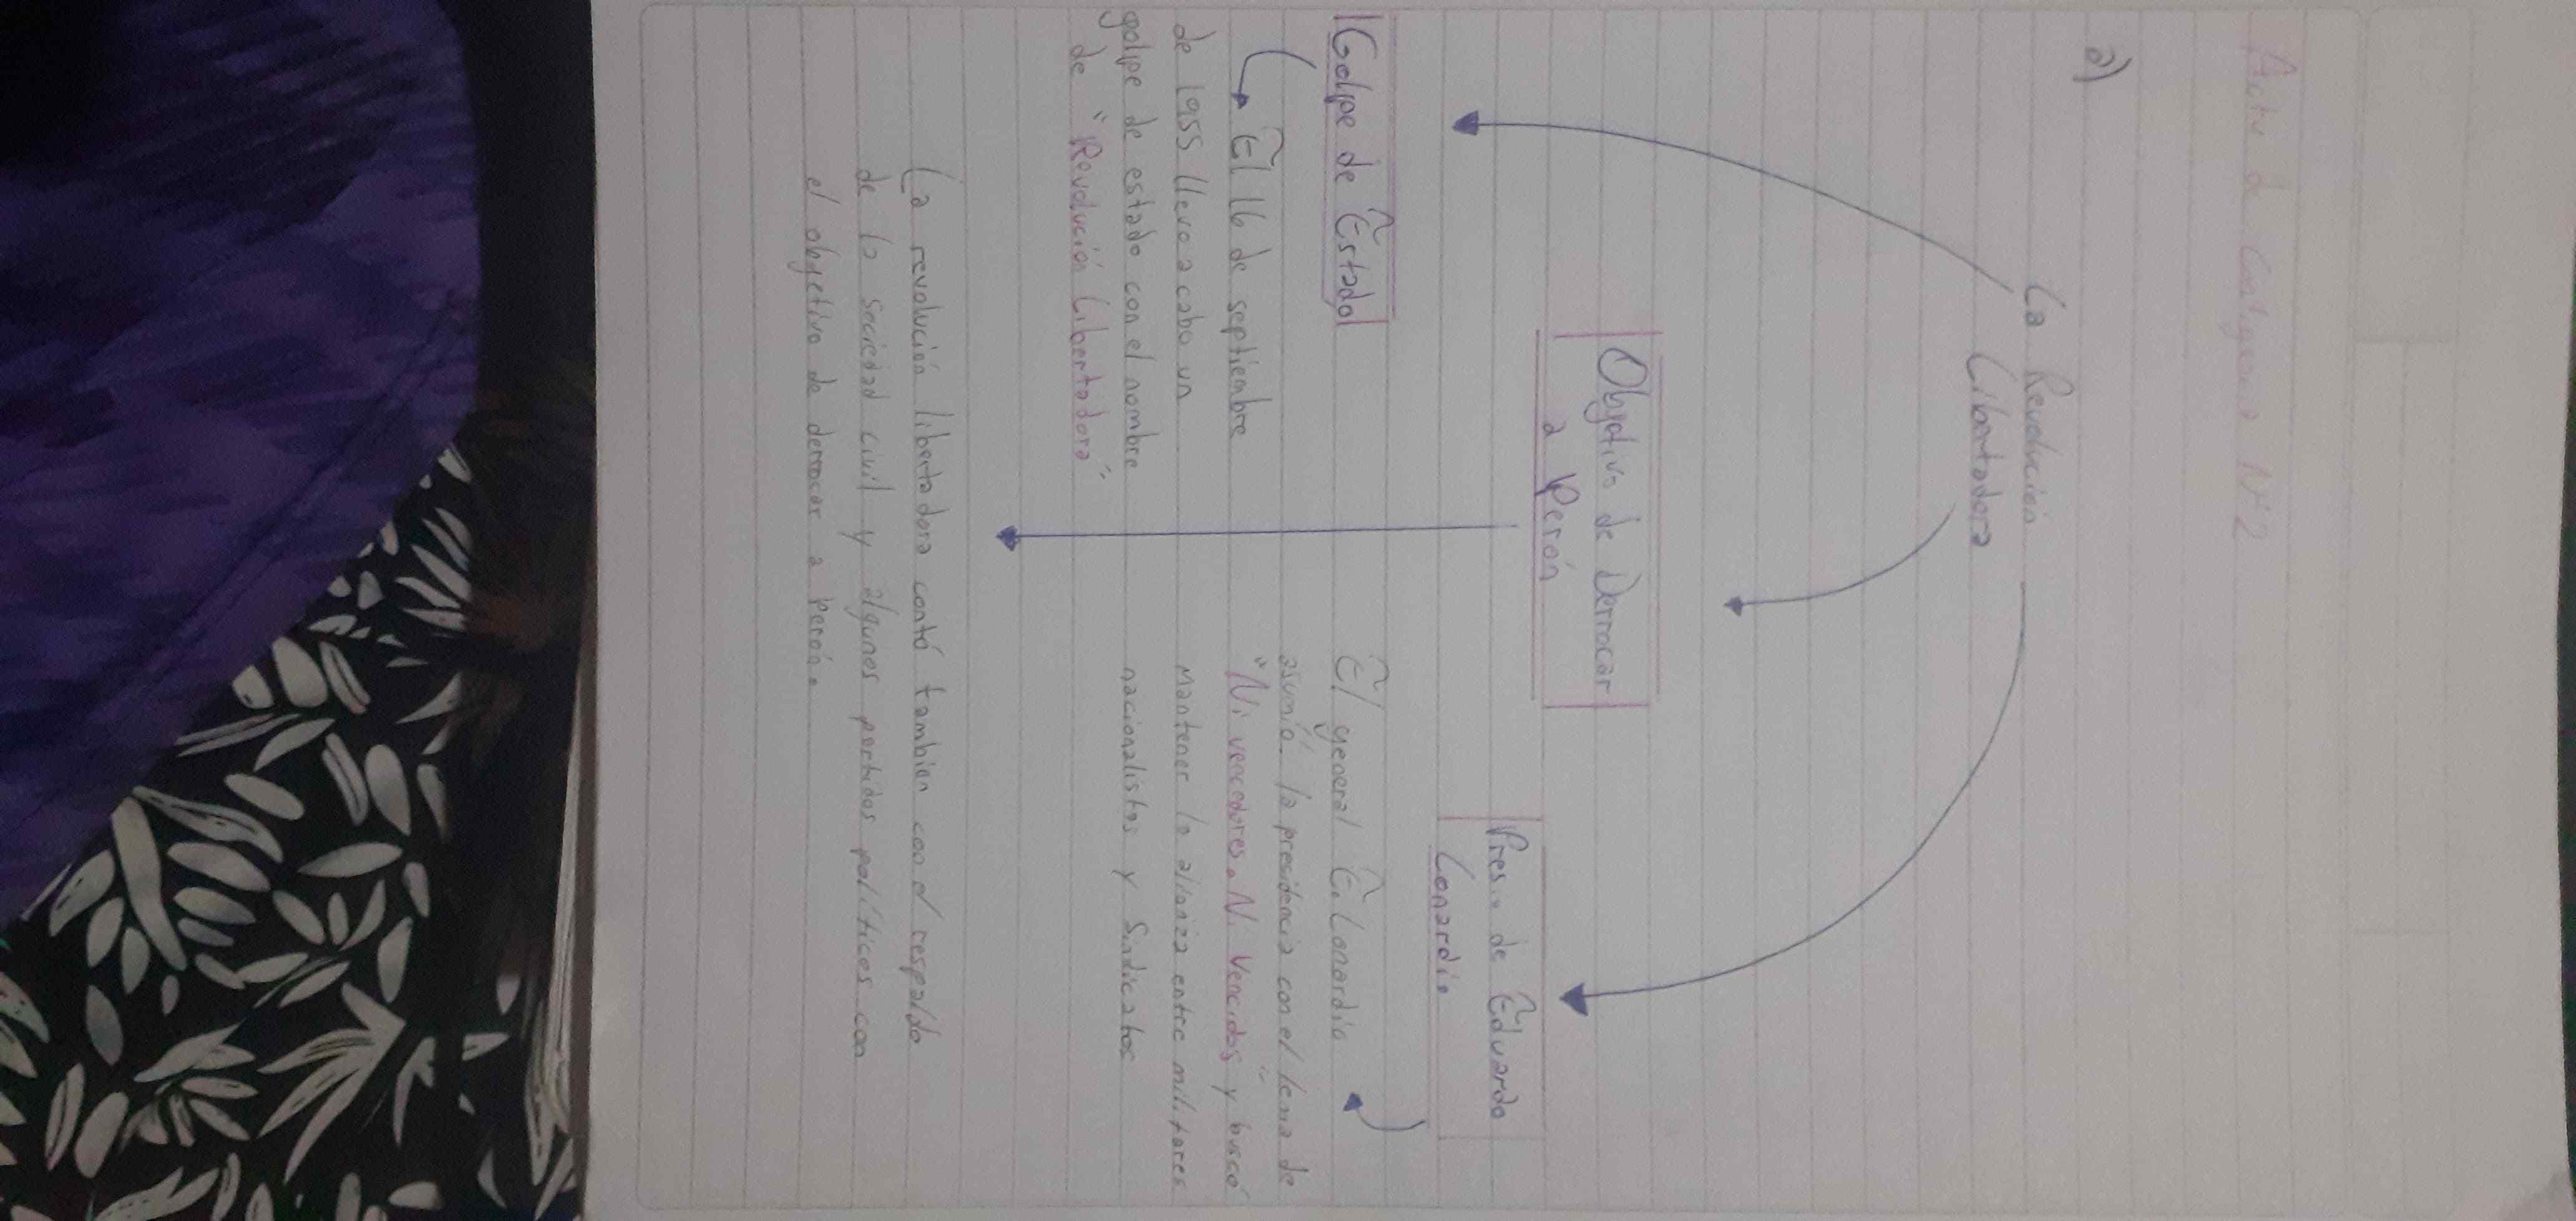 Actv de Contigencia N°2
a)
La Revolución
Libertadora
Objetivo de Derrocar
a Perón
Pres.. de Eduardo
Lonardio
Golpe de Estado
El 16 de septiembre
de 1955 llevo a cabo un
golpe de estado con el nombre
de "Revolución Libertadora"
El general E. Lonardio
asumió la presidencia con el lema de
"Ni vencedores. Ni vencidos" y buscó
mantener la alianza entre militares
nacionalistas y Sindicatos
La revolución libertadora contó tambien con el respaldo
de la sociedad civil y algunos partidos políticos con
el objetivo de derrocar a Perón.